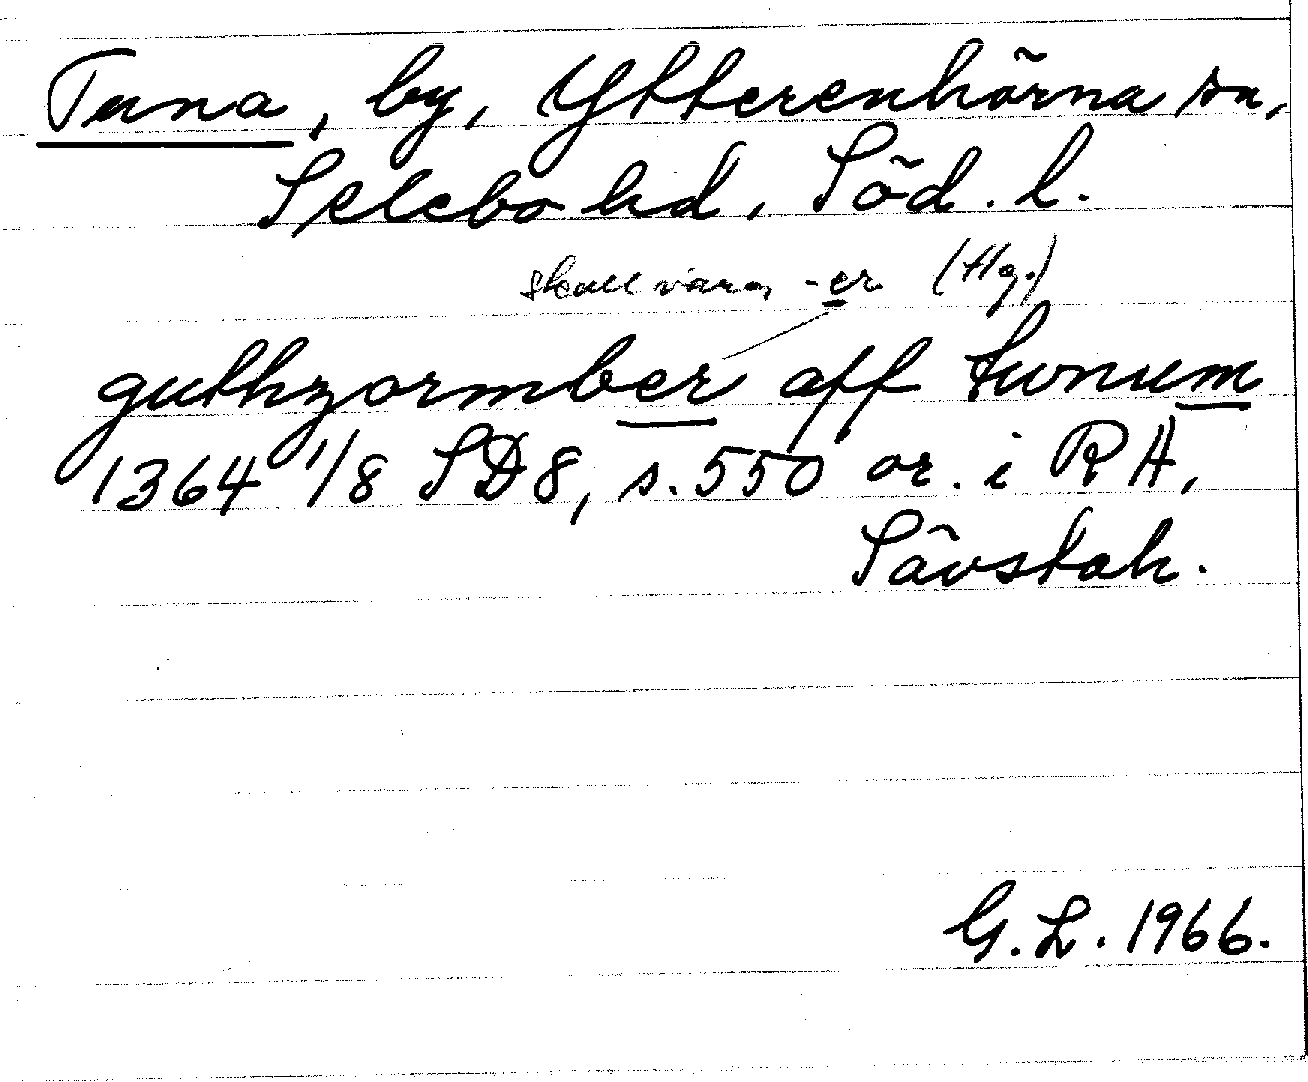 Tuna, by, Ytterenhörna sn,
Selebo hd, Söd. l.
skall vara -er (Hg.)
guthzormber aff tunum
1364 1/8 SD8, s. 550 or. i RA,
Sävstah.
G. L. 1966.